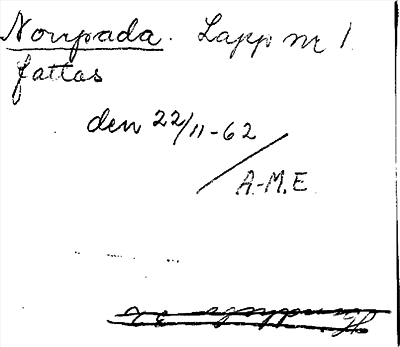 Norrpada. Lapp nr 1
fattas
den 22/11-62
A-M.E.